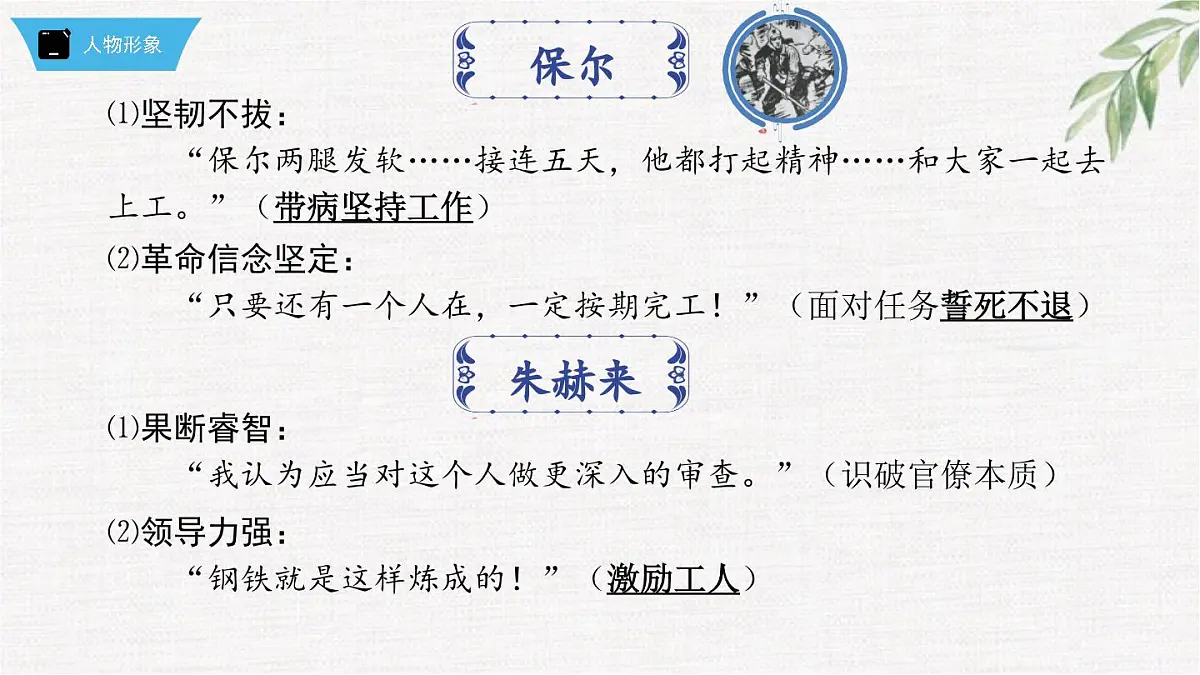 人物形象
保尔
⑴坚韧不拔：
“保尔两腿发软……接连五天，他都打起精神……和大家一起去
上工。”（带病坚持工作）
⑵革命信念坚定：
“只要还有一个人在，一定按期完工！”（面对任务誓死不退）
朱赫来
⑴果断睿智：
“我认为应当对这个人做更深入的审查。”（识破官僚本质）
⑵领导力强：
“钢铁就是这样炼成的！”（激励工人）